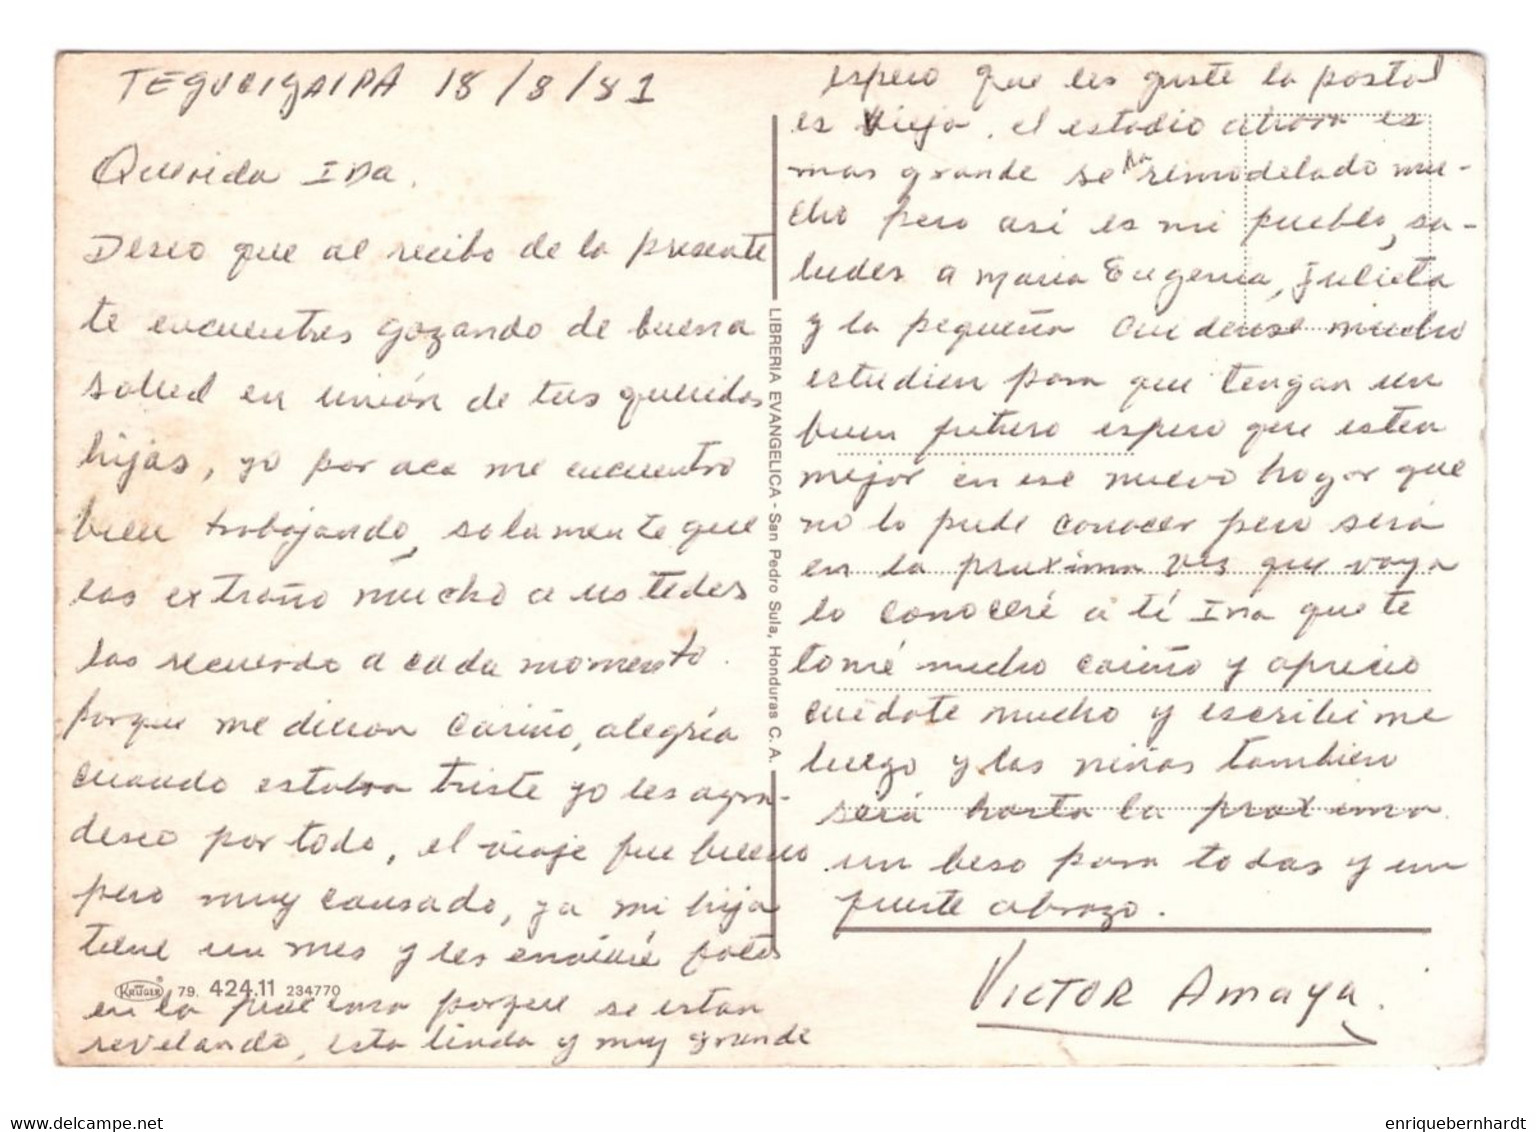 TEGUCIGALPA 18/8/81
Querida INa.
Deseo que al recibo de la presente
te encuentres gozando de buena
salud en unión de tus queridas
hijas, yo por aca me encuentro
bien trabajando, solamente que
las extraño mucho a ustedes
las recuerdo a cada momento.
porque me dieron cariño, alegría
cuando estaba triste yo les agra-
desco por todo, el viaje fue bueno
pero muy cansado, ya mi hija
tiene un mes y les enviaré fotos
en la proxima porque se estan
revelando, esta linda y muy grande
KRÜGER 79. 424.11 234770
LIBRERIA EVANGELICA - San Pedro Sula, Honduras C. A.
espero que les guste la postal
es vieja. el estadio ahora es
mas grande se ha remodelado mu-
cho pero así es mi pueblo, sa-
ludes a Maria Eugenia, Julieta
y la pequeña cuidense mucho
estudien para que tengan un
buen futuro espero que esten
mejor en ese nuevo hogar que
no lo pude conocer pero será
en la proxima vez que vaya
lo conoceré a tí Ina que te
tomé mucho cariño y aprecio
cuidate mucho y escribime
luego y las niñas tambien
será hasta la proxima.
un beso para todas y un
fuerte abrazo.
VICTOR Amaya.
www.delcampe.net
enriquebernhardt